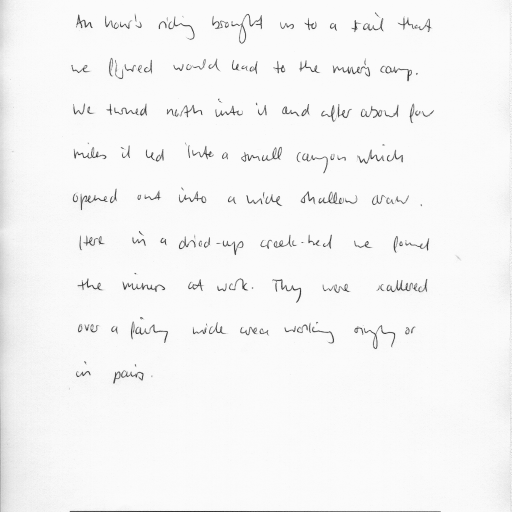 An hour's riding brought us to a trail that
we figured would lead to the miner's camp.
We turned north into it and after about four
miles it led into a small canyon which
opened out into a wide shallow draw.
Here in a dried-up creek-bed we found
the miners at work. They were scattered
over a fairly wide area working singly or
in pairs.